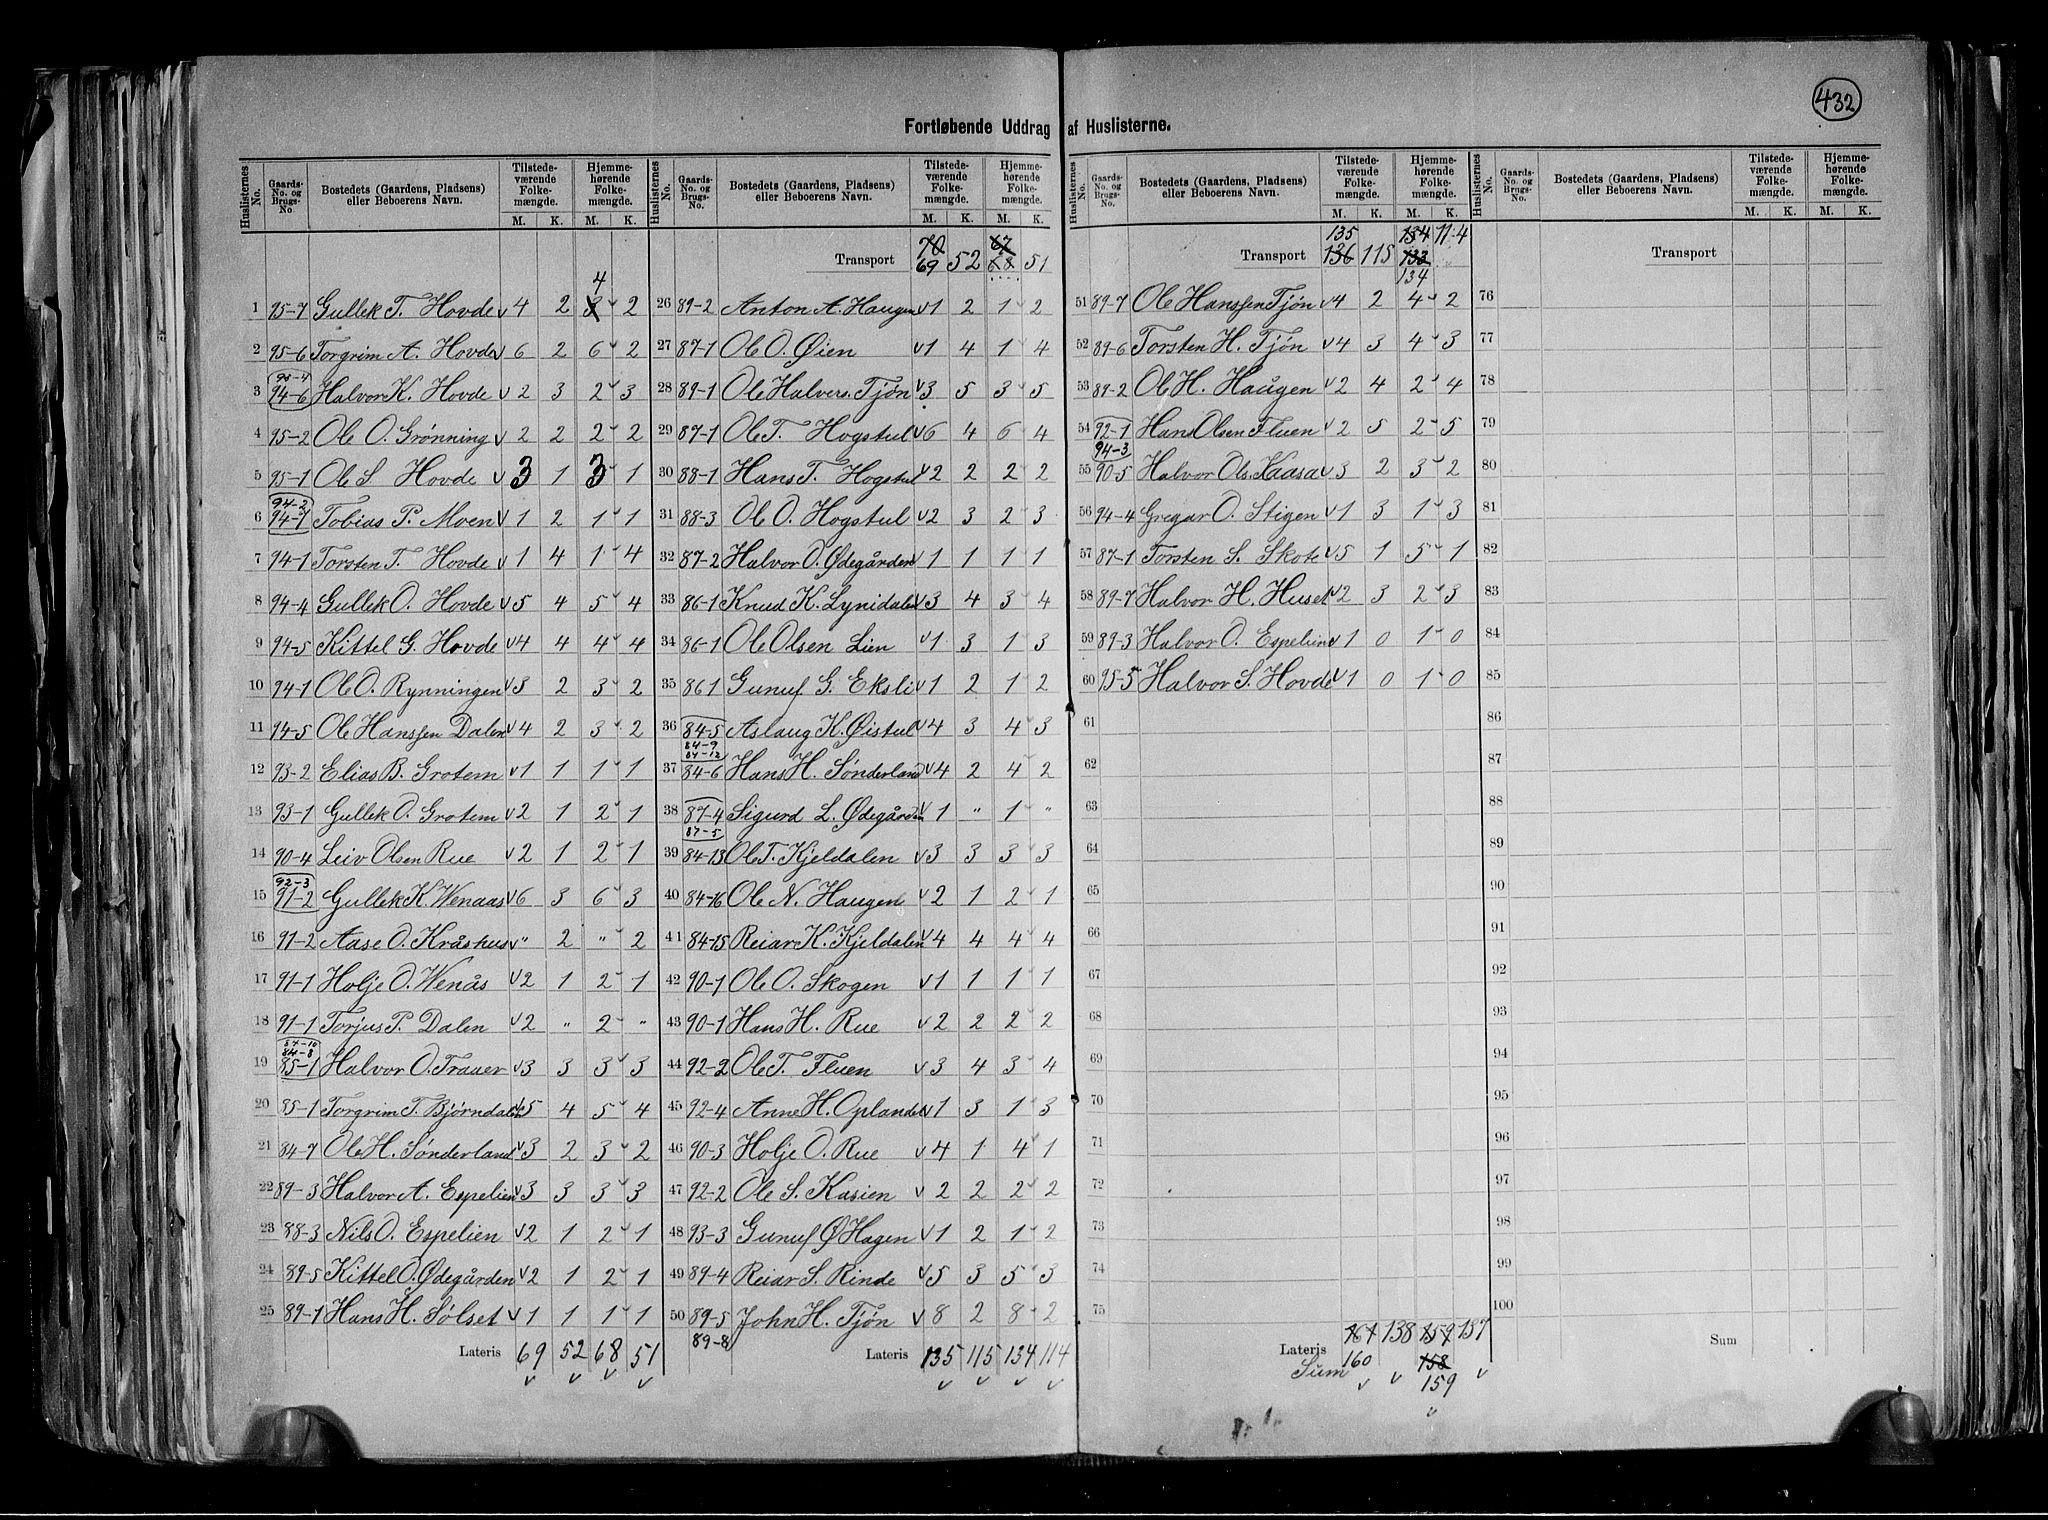 432
Fortløbende Uddrag af Huslisterne.
Huslisternes No. | Gaards-No. og Brugs-No. | Bostedets (Gaardens, Pladsens) eller Beboerens Navn. | Tilstedeværende Folkemængde. M. K. | Hjemmehørende Folkemængde. M. K.
1 95-7 Gullek T. Hovde 4 2 3 4 2
2 95-6 Torgrim A. Hovde 6 2 6 2
3 95-4 94-6 Halvor K. Hovde 2 3 2 3
4 95-2 Ole O. Grønning 2 2 2 2
5 95-1 Ole S Hovde 3 1 3 1
6 94-2 94-1 Tobias P. Moen 1 2 1 1
7 94-1 Torsten T. Hovde 1 4 1 4
8 94-4 Gullek O. Hovde 5 4 5 4
9 94-5 Kittel G. Hovde 4 4 4 4
10 94-1 Ole O. Rynningen 3 2 3 2
11 94-5 Ole Hanssen Dalen 4 2 3 2
12 93-2 Elias B. Grotem 1 1 1 1
13 93-1 Gullek O. Grotem 2 1 2 1
14 90-4 Leiv Olsen Rue 2 1 2 1
15 92-3 91-2 Gullek K. Wenaas 6 3 6 3
16 91-2 Aase O. Kråshus " 2 " 2
17 91-1 Holje O. Wenås 2 1 2 1
18 91-1 Torjus P. Dalen 2 " 2 "
19 84-10 84-8 85-1 Halvor O. Traaer 3 3 3 3
20 85-1 Torgrim T. Bjørndalen 5 4 5 4
21 84-7 Ole H. Sønderland 3 2 3 2
22 89-3 Halvor A. Espelien 3 3 3 3
23 88-3 Nils O. Espelien 2 1 2 1
24 89-5 Kittel O. Ødegården 2 1 2 1
25 89-1 Hans H. Sølset 1 1 1 1
Lateris 69 52 68 51
Huslisternes No. | Gaards-No. og Brugs-No. | Bostedets (Gaardens, Pladsens) eller Beboerens Navn. | Tilstedeværende Folkemængde. M. K. | Hjemmehørende Folkemængde. M. K.
Transport 70 69 52 67 68 51
26 89-2 Anton A. Haugen 1 2 1 2
27 87-1 Ole O. Øien 1 4 1 4
28 89-1 Ole Halvors. Tjøn 3 5 3 5
29 87-1 Ole T. Hogstul 6 4 6 4
30 88-1 Hans T. Hogstul 2 2 2 2
31 88-3 Ole O. Hogstul 2 3 2 3
32 87-2 Halvor O. Ødegården 1 1 1 1
33 86-1 Knud K. Lynidalen 3 4 3 4
34 86-1 Ole Olsen Lien 1 3 1 3
35 86 1 Gunuf G. Eksli 1 2 1 2
36 84-5 Aslaug K. Øistul 4 3 4 3
37 84-9 84-12 84-6 Hans H. Sønderland 4 2 4 2
38 87-4 87-5 Sigurd L. Ødegården 1 " 1 "
39 84-13 Ole T. Kjeldalen 3 3 3 3
40 84-16 Ole N. Haugen 2 1 2 1
41 84-15 Reiar K. Kjeldalen 4 4 4 4
42 90-1 Ole O. Skogen 1 1 1 1
43 90-1 Hans H. Rue 2 2 2 2
44 92-2 Ole T. Fluen 3 4 3 4
45 92-4 Anne H. Oplandet 1 3 1 3
46 90-3 Holje O. Rue 4 1 4 1
47 92-2 Ole S. Kasien 2 2 2 2
48 93-3 Gunuf Ø Hagen 1 2 1 2
49 89-4 Reiar S. Rinde 5 3 5 3
50 89-5 89-8 John H. Tjøn 8 2 8 2
Lateris 135 115 134 114
Huslisternes No. | Gaards-No. og Brugs-No. | Bostedets (Gaardens, Pladsens) eller Beboerens Navn. | Tilstedeværende Folkemængde. M. K. | Hjemmehørende Folkemængde. M. K.
Transport 135 136 115 134 133 134 114
51 89-7 Ole Hanssen Tjøn 4 2 4 2
52 89-6 Torsten H. Tjøn 4 3 4 3
53 89-2 Ole H. Haugen 2 4 2 4
54 92-1 Hans Olsen Fluen 2 5 2 5
55 94-3 90-5 Halvor Ols. Kaasa 3 2 3 2
56 94-4 Gregar O. Stigen 1 3 1 3
57 87-1 Torsten S. Skote 5 1 5 1
58 89-7 Halvor H. Huset 2 3 2 3
59 89-3 Halvor O. Espelien 1 0 1 0
60 95-5 Halvor S. Hovde 1 0 1 0
61
62
63
64
65
66
67
68
69
70
71
72
73
74
75
Lateris 161 138 159 137
Sum 160 158
159
Huslisternes No. | Gaards-No. og Brugs-No. | Bostedets (Gaardens, Pladsens) eller Beboerens Navn. | Tilstedeværende Folkemængde. M. K. | Hjemmehørende Folkemængde. M. K.
Transport
76
77
78
79
80
81
82
83
84
85
86
87
88
89
90
91
92
93
94
95
96
97
98
99
100
Sum